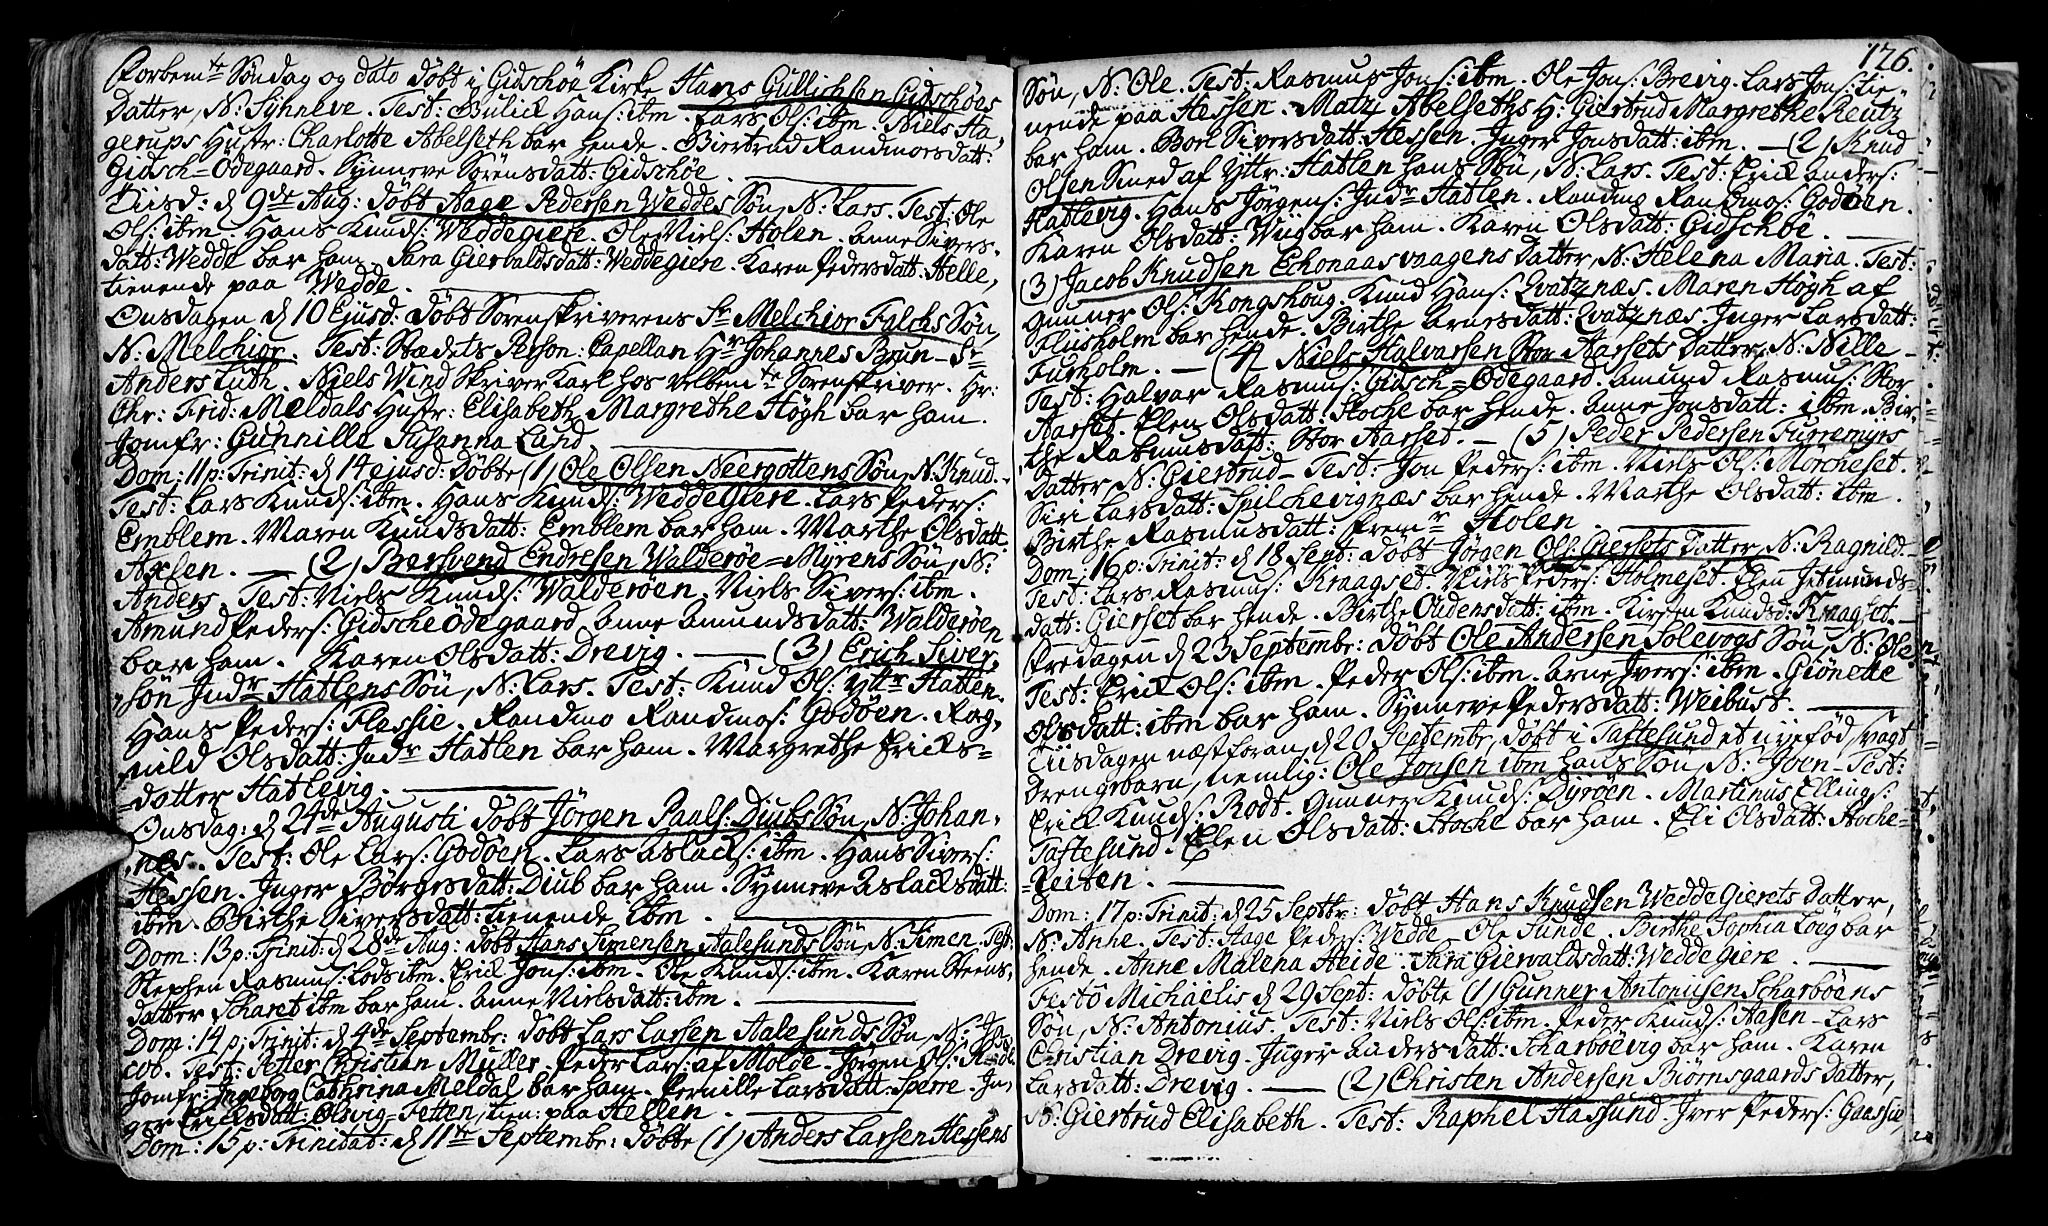 Forbem.te Søndag og dato døbt i Gidschöe Kirke Hans Gullichsen Gidschöes
Datter, N: Synneve. Test: Gulick Hans: ibm. Lars Ols: ibm. Niels Ha,
gerups Hustr: Charlotte Abelseth bar hende. Giertrud Randmorsdatt:
Gidsch=Ödegaard. Synneve Sörensdatt: Gidschöe.
Tiisd: d 9de Aug: döbt Aage Pedersen Weddes Søn, N: Lars. Test: Ole
Ols: ibm. Hans Knuds: Weddegiere. Ole Niels: Holen. Anne Sivers-
datt: Wedde bar ham. Sara Giervaldsdatt: Weddegiere. Karen Pedersdatt: Helle,
tienende paa Wedde.
Onsdagen d 10 Ejusd: döbt Sorenskriverens Sr Melchior Falchs Søn,
N: Melchior. Test: Stædets Person: Capellan Hr Johannes Brun - Sr
Anders Luth. Niels Wind Skriver Karl hos velbem.te Sorenskriver. Hr:
Chr: Frid: Meldals Hustr: Elisabeth Margrethe Högh bar ham.
Jomfr: Gunnille Susanna Lund.
Dom: 11 p: Trinit: d 14 ejusd: döbte (1) Ole Olsen Neergottens Søn, N: Knud.
Test: Lars Knuds: ibm. Hans Knuds: Weddegiere. Lars Peders:
Emblem. Maren Knudsdatt: Emblem bar ham. Marthe Olsdatt:
Axlen. — (2) Bersvend Endresen Walderöe=Myrens Søn, N:
Anders. Test: Niels Knuds: Walderöen. Niels Sivers: ibm.
Amund Peders: Gidsche Ödegaard. Anne Amundsdatt: Walderöen
bar ham. Karen Olsdatt: Drevig. — (3) Erich Siver,
søn Indr Hatlens Søn, N: Lars. Test: Knud Ols: Yttr Hatlen.
Hans Peders: Flessie. Randmo Randmos: Godöen. Rag,
nild Olsdatt: Indr Hatlen bar ham. Margrethe Ericks=
=datter Hatlevig.
Onsdag: d 24de Augusti döbt Jörgen Paals: Diubs Søn, N: Johan,
nes. Test: Ole Lars: Godöen. Lars Aslacks: ibm. Hans Sivers:
Hessen. Inger Börgesdatt: Diub bar ham. Synneve Aslacksdatt:
ibm. Birthe Siversdatt: tienende ibm.
Dom: 13 p: Trinit: d 28de Aug: döbt Hans Simensen Aalesunds Søn, N: Simen. Test:
Stephen Rasmus: Lods ibm. Erick Jons: ibm. Ole Knuds: ibm. Karen Steens,
datter Scharet ibm bar ham. Anne Nielsdatt: ibm.
Dom: 14 p: Trinit: d 4de Septembr: döbt Lars Larsen Aalesunds Søn, N: Ja,
cob. Test: Petter Christian Muller. Peder Lars: af Molde. Jörgen Ols:
Jomfr: Ingeborg Cathrina Meldal bar ham. Pernille Larsdatt: Sperre. In,
ger Ericksdatt: Olsvig=Fetten, tien: paa Hellen.
Dom: 15 p: Trinitat: d 11te Septembr: döbte (1) Anders Larsen Hessens
126.
Søn, N: Ole. Test: Rasmus Jons: ibm. Ole Jons: Brevig. Lars Jons: tie=
nende paa Hessen. Matz Abelseths H: Giertrud Margrethe Reutz
bar ham. Borl Siversdatt: Hessen. Inger Jonsdatt: ibm. — (2) Knud
Olsen Smed af Yttr: Hatlen hans Søn, N: Lars. Test: Erick Anders:
Hatlevig. Hans Jörgens: Indr Hatlen. Randmo Randmos: Godöen.
Karen Olsdatt: Wiig bar ham. Karen Olsdatt: Gidschöe.
(3) Jacob Knudsen Echonaasvaagens Datter, N: Helena Maria. Test:
Gunner Ols: Kongshoug. Knud Hans: Qvatznæs. Maren Högh af
Fliisholm bar hende. Birthe Arnesdatt: Qvatznæs. Inger Larsdatt:
Furholm. — (4 Niels Halvarsen Stor Aarsets Datter, N: Nille -
Test: Halvar Rasmus: Gidsch=Ödegaard. Amund Rasmus: Stor
Aarset. Elen Olsdatt: Stoche bar hende. Anne Jonsdatt: ibm. Bir,
the Rasmusdatt: Stor Aarset. — (5) Peder Pedersen Furremyrs
Datter, N: Giertrud - Test: Jon Peders: ibm. Niels Ols: Morcheset.
Siri Larsdatt: Spilchevignæs bar hende. Marthe Olsdatt: ibm.
Birthe Rasmusdatt: Fremr Holen.
Dom: 16 p: Trinit: d 18 Sept: döbt Jörgen Ols: Giersets Datter, N: Ragnild.
Test: Lars Rasmus: Kraagset. Niels Peders: Holmeset. Elen Jetmunds=
datt: Gierset bar hende. Birthe Oudensdatt: ibm. Kirsten Knudsd: Kraagset.
Fredagen d 23 Septembr: döbt Ole Andersen Solevogs Søn, N: Ole.
Test: Erick Ols: ibm. Peder Ols: ibm. Arne Ivers: ibm. Giönette
Olsdatt: ibm bar ham. Synneve Pedersdatt: Weibust.
Tiisdagen næstforan, d 20 Septembr, döbt i Taftesund et uvefød svagt
Drengebarn, nemlig: Ole Jonsen ibm hans Søn, N: Joen - Test:
Erick Knuds: Rodt. Gunner Knuds: Dyröen. Martinus Ellings:
Taftesund. Elen Olsdatt: Stoche bar ham. Eli Olsdatt: Stoche=
=Reiten.
Dom: 17 p: Trinit: d 25 Septbr: döbt Hans Knudsen Wedde Gierets Datter,
N: Anne. Test: Aage Peders: Wedde. Ole Sunde. Birthe Sophia Löeg bar
hende. Anne Malena Heide. Sara Giervaldsdatt: Wedde Giere.
Festo Michaelis d 29 Sept: döbte (1) Gunner Antonisen Scharböens
Søn, N: Antonius. Test: Niels Ols: ibm. Peder Knuds: Aasen - Lars
Christian Drevig. Inger Andersdatt: Scharböevig bar ham. Karen
Larsdatt: Drevig. — (2) Christen Andersen Biörnsgaards Datter,
N: Giertrud Elisabeth. Test: Raphel Hassund. Iver Peders: Gaasie,